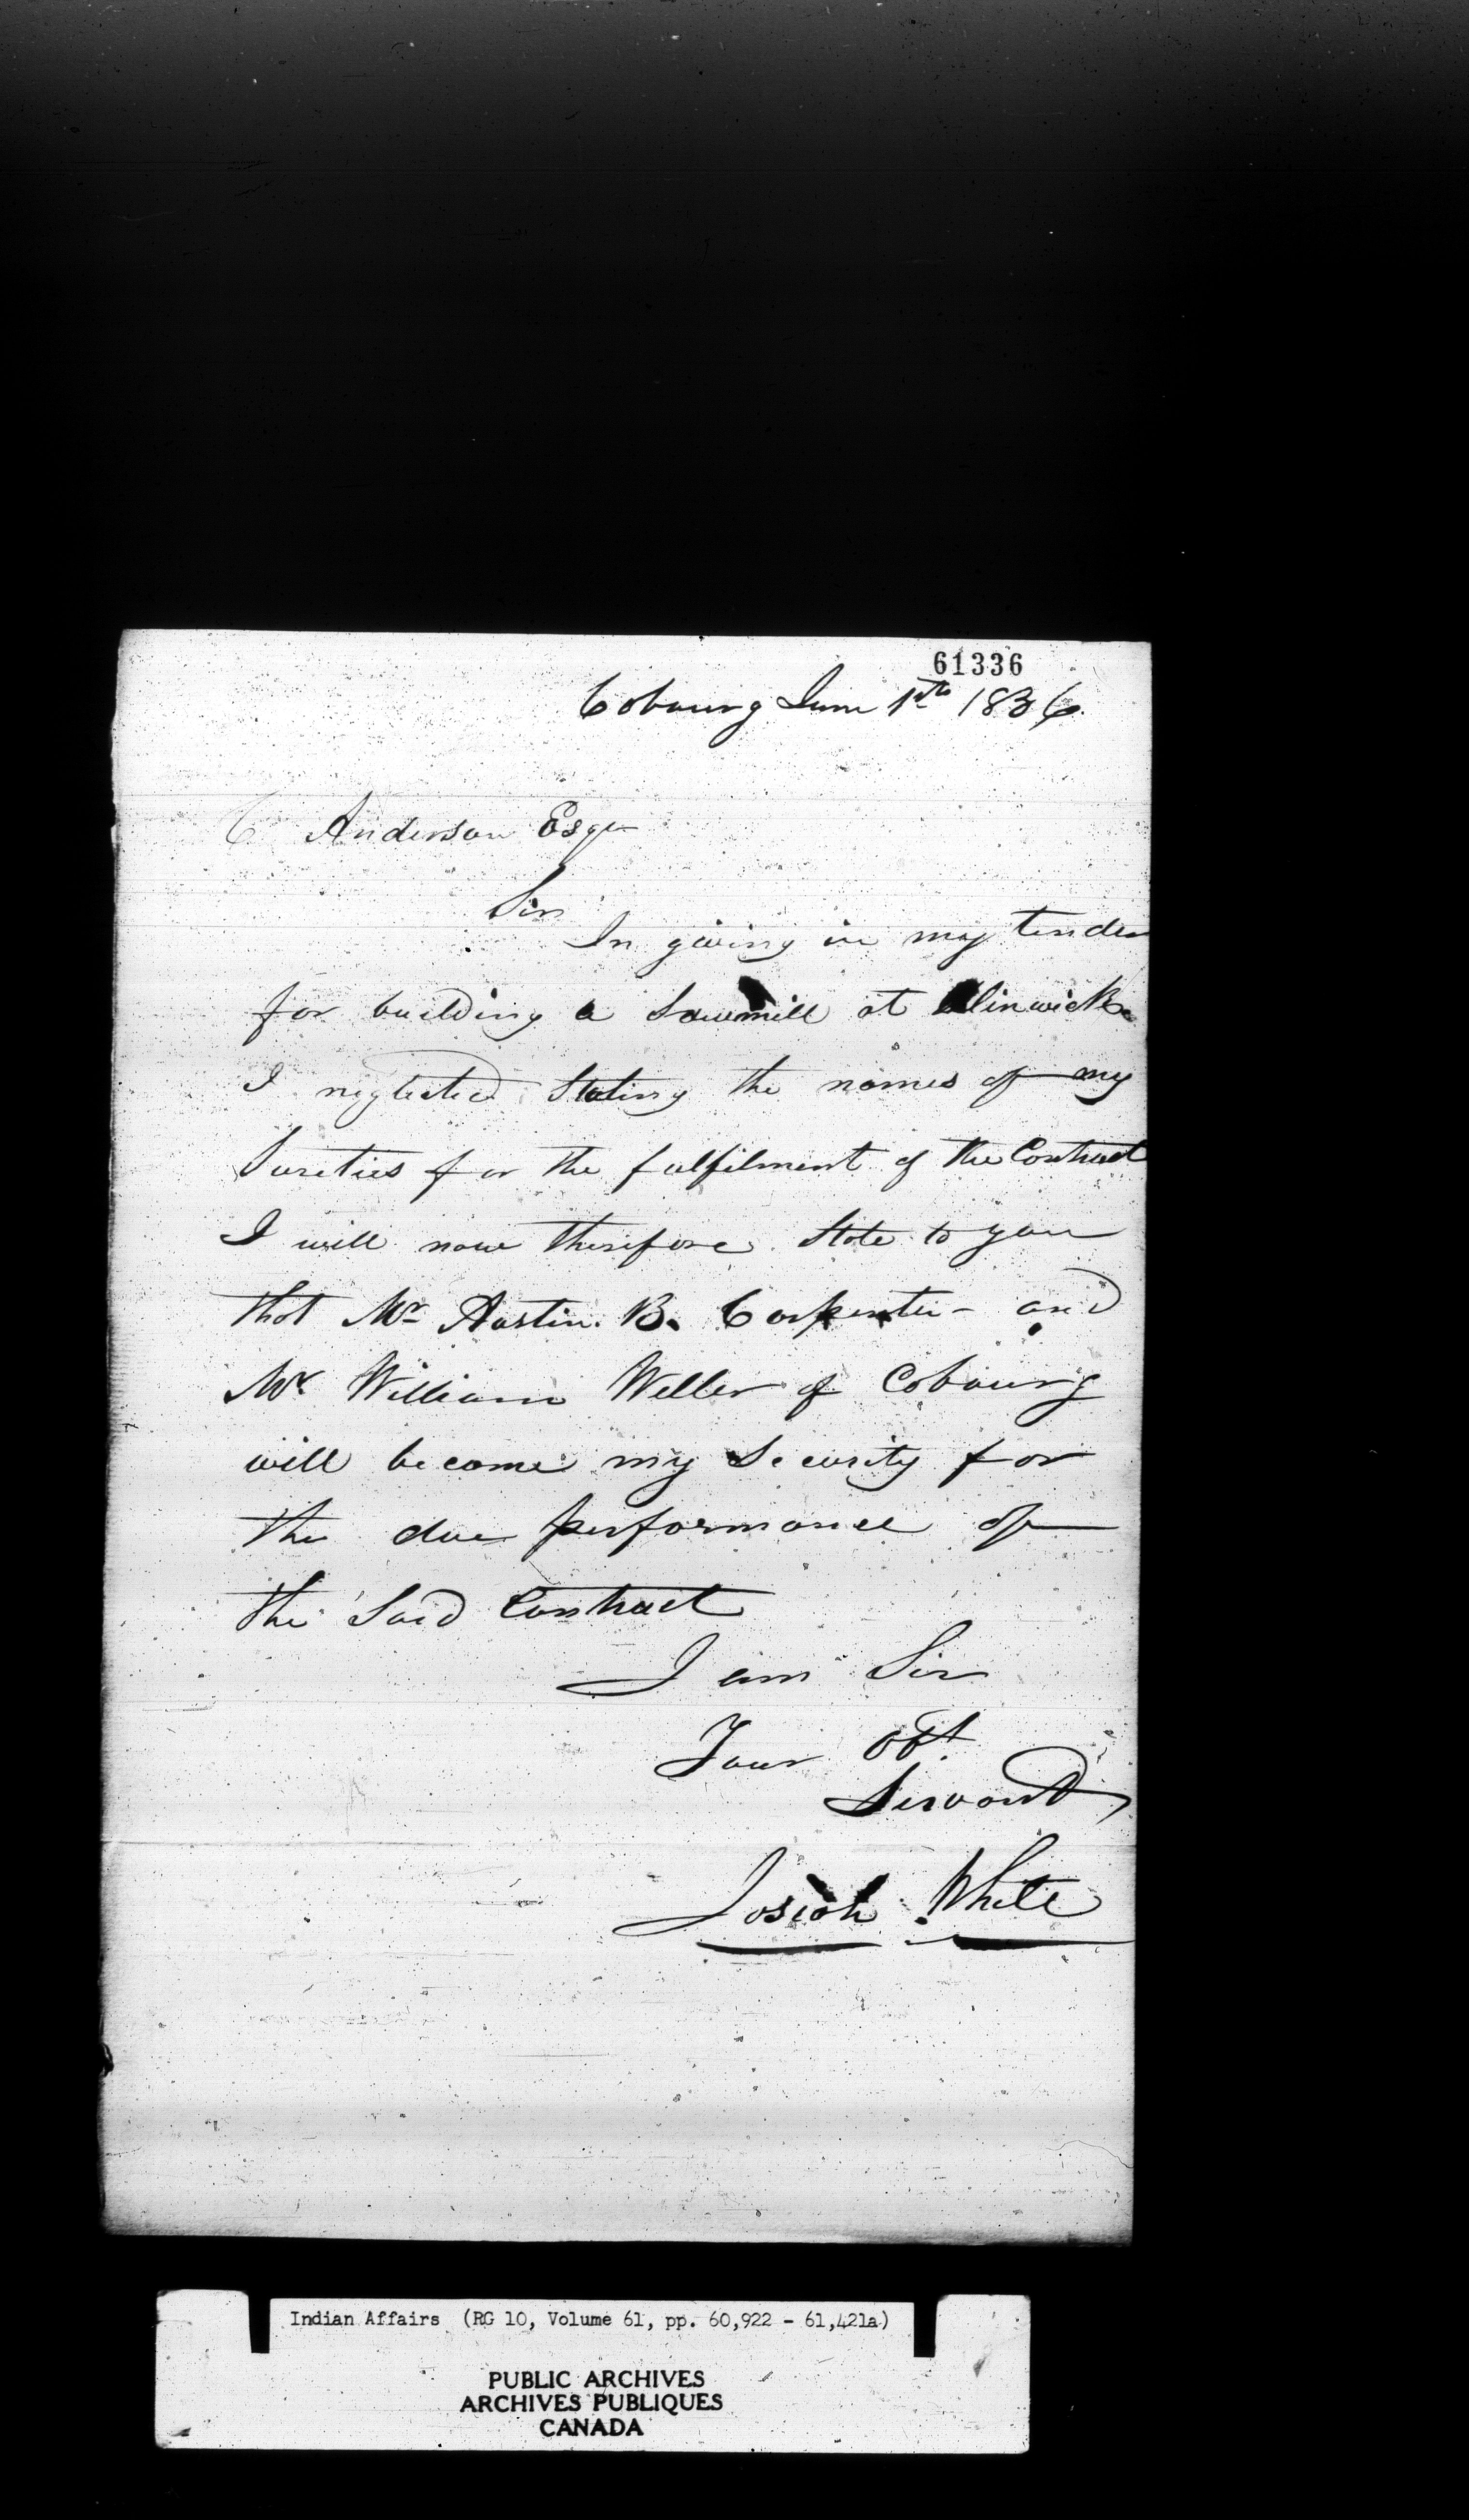 61336
Cobourg June 1th 1836
C Anderson Esqr
Sir
In giving in my tender
for building a Sawmill at Alinwick
I neglected Stating the names of my
Sureties for the fulfilment of the Contract
I will now therefore State to you
that Mr Austin. B. Carpenter - and
Mr William Weller of Cobourg
will become my Security for
the due performance of
the Said Contract
I am Sir
Your Obt
Servant
Josiah White
Indian Affairs (RG 10, Volume 61, pp. 60,922 - 61,421a)
PUBLIC ARCHIVES
ARCHIVES PUBLIQUES
CANADA